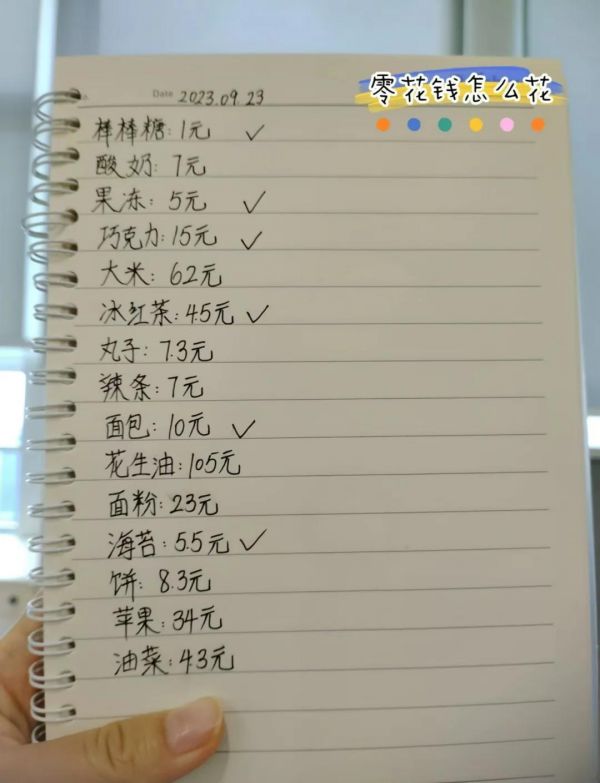 零花钱怎么花
Date 2023.09.23
棒棒糖:1元 ✓
酸奶:7元
果冻:5元 ✓
巧克力:15元 ✓
大米:62元
冰红茶:4.5元 ✓
丸子:7.3元
辣条:7元
面包:10元 ✓
花生油:105元
面粉:23元
海苔:5.5元 ✓
饼:8.3元
苹果:34元
油菜:43元